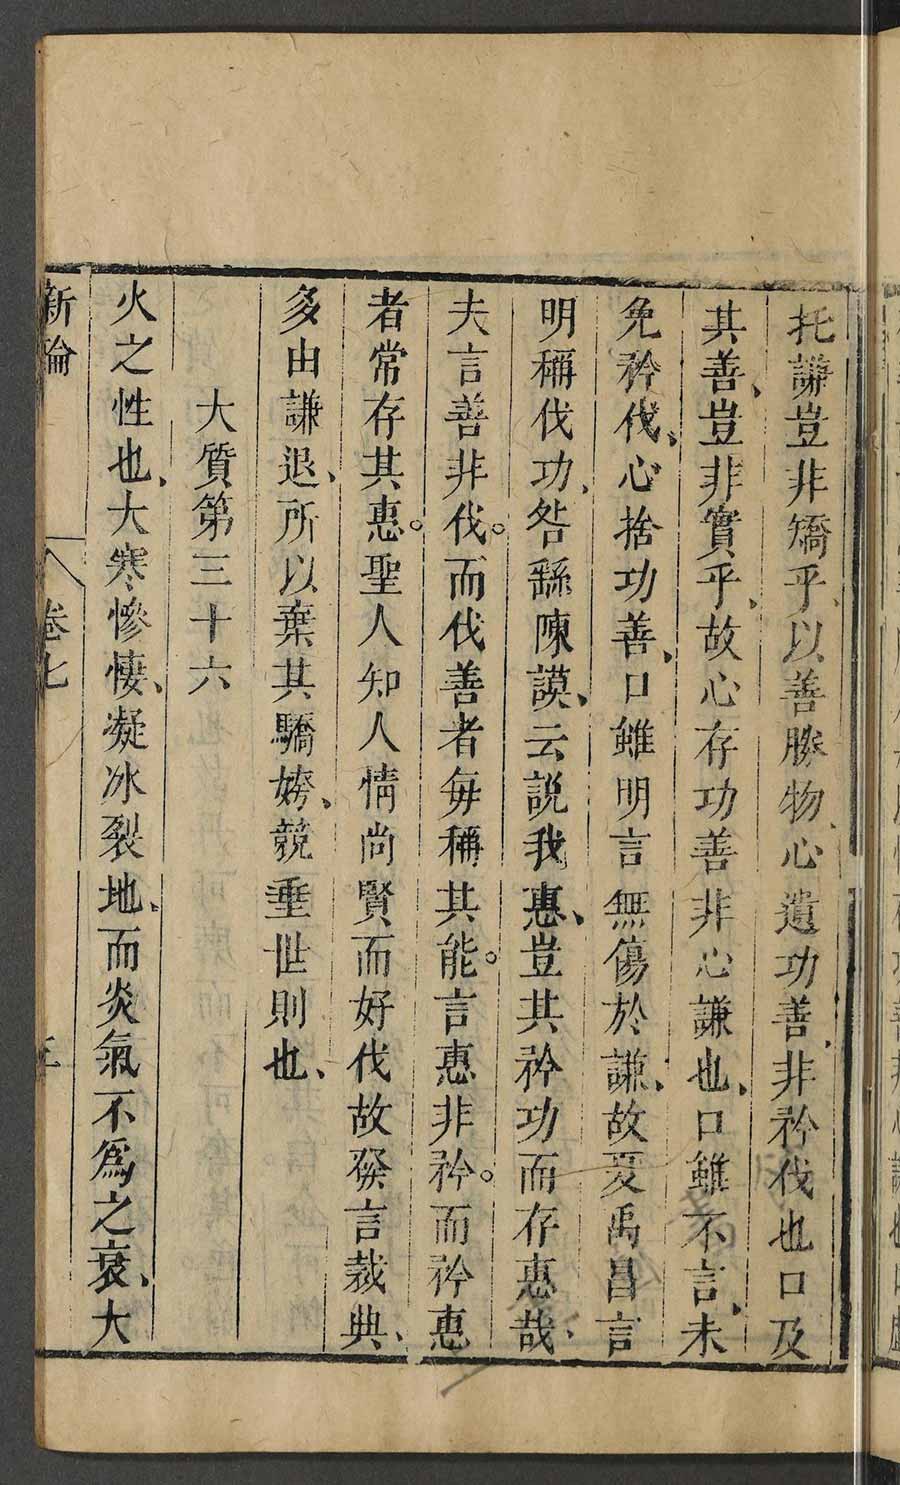 托謙豈非矯乎以善勝物心遺功善非矜伐也口及
其善豈非實乎故心存功善非心謙也口雖不言未
免矜伐心捨功善口雖明言無傷於謙故夏禹昌言
明稱伐功咎繇陳謨云說我惠豈其矜功而存惠哉
夫言善非伐而伐善者每稱其能言惠非矜而矜惠
者常存其惠聖人知人情尚賢而好伐故發言裁典
多由謙退所以棄其驕姱競垂世則也
大質第三十六
火之性也大寒慘悽凝冰裂地而炎氣不爲之衰大
新論 卷七 五